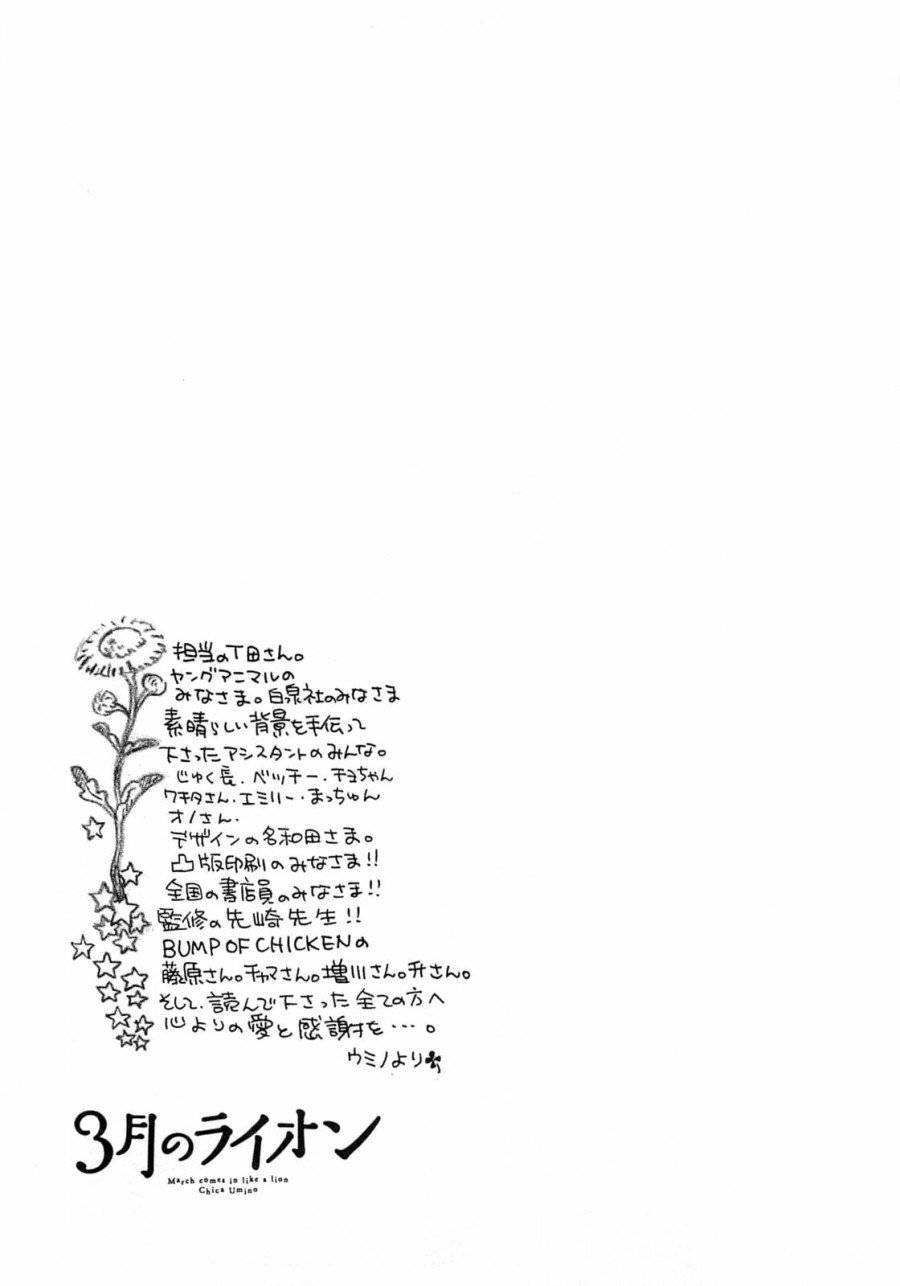 担当のT田さん。
ヤングアニマルの
みなさま。白泉社のみなさま
素晴らしい背景を手伝って
下さったアシスタントのみんな。
じゅく長．ベッチー．チョちゃん
ワチタさん．エミリー．まっちゅん
オノさん．
デザインの名和田さま。
凸版印刷のみなさま!!
全国の書店員のみなさま!!
監修の先崎先生!!
BUMP OF CHICKENの
藤原さん。チャマさん。増川さん。升さん。
そして、読んで下さった全ての方へ
心よりの愛と感謝を…。
ウミノより
3月のライオン
March comes in like a lion
Chica Umino